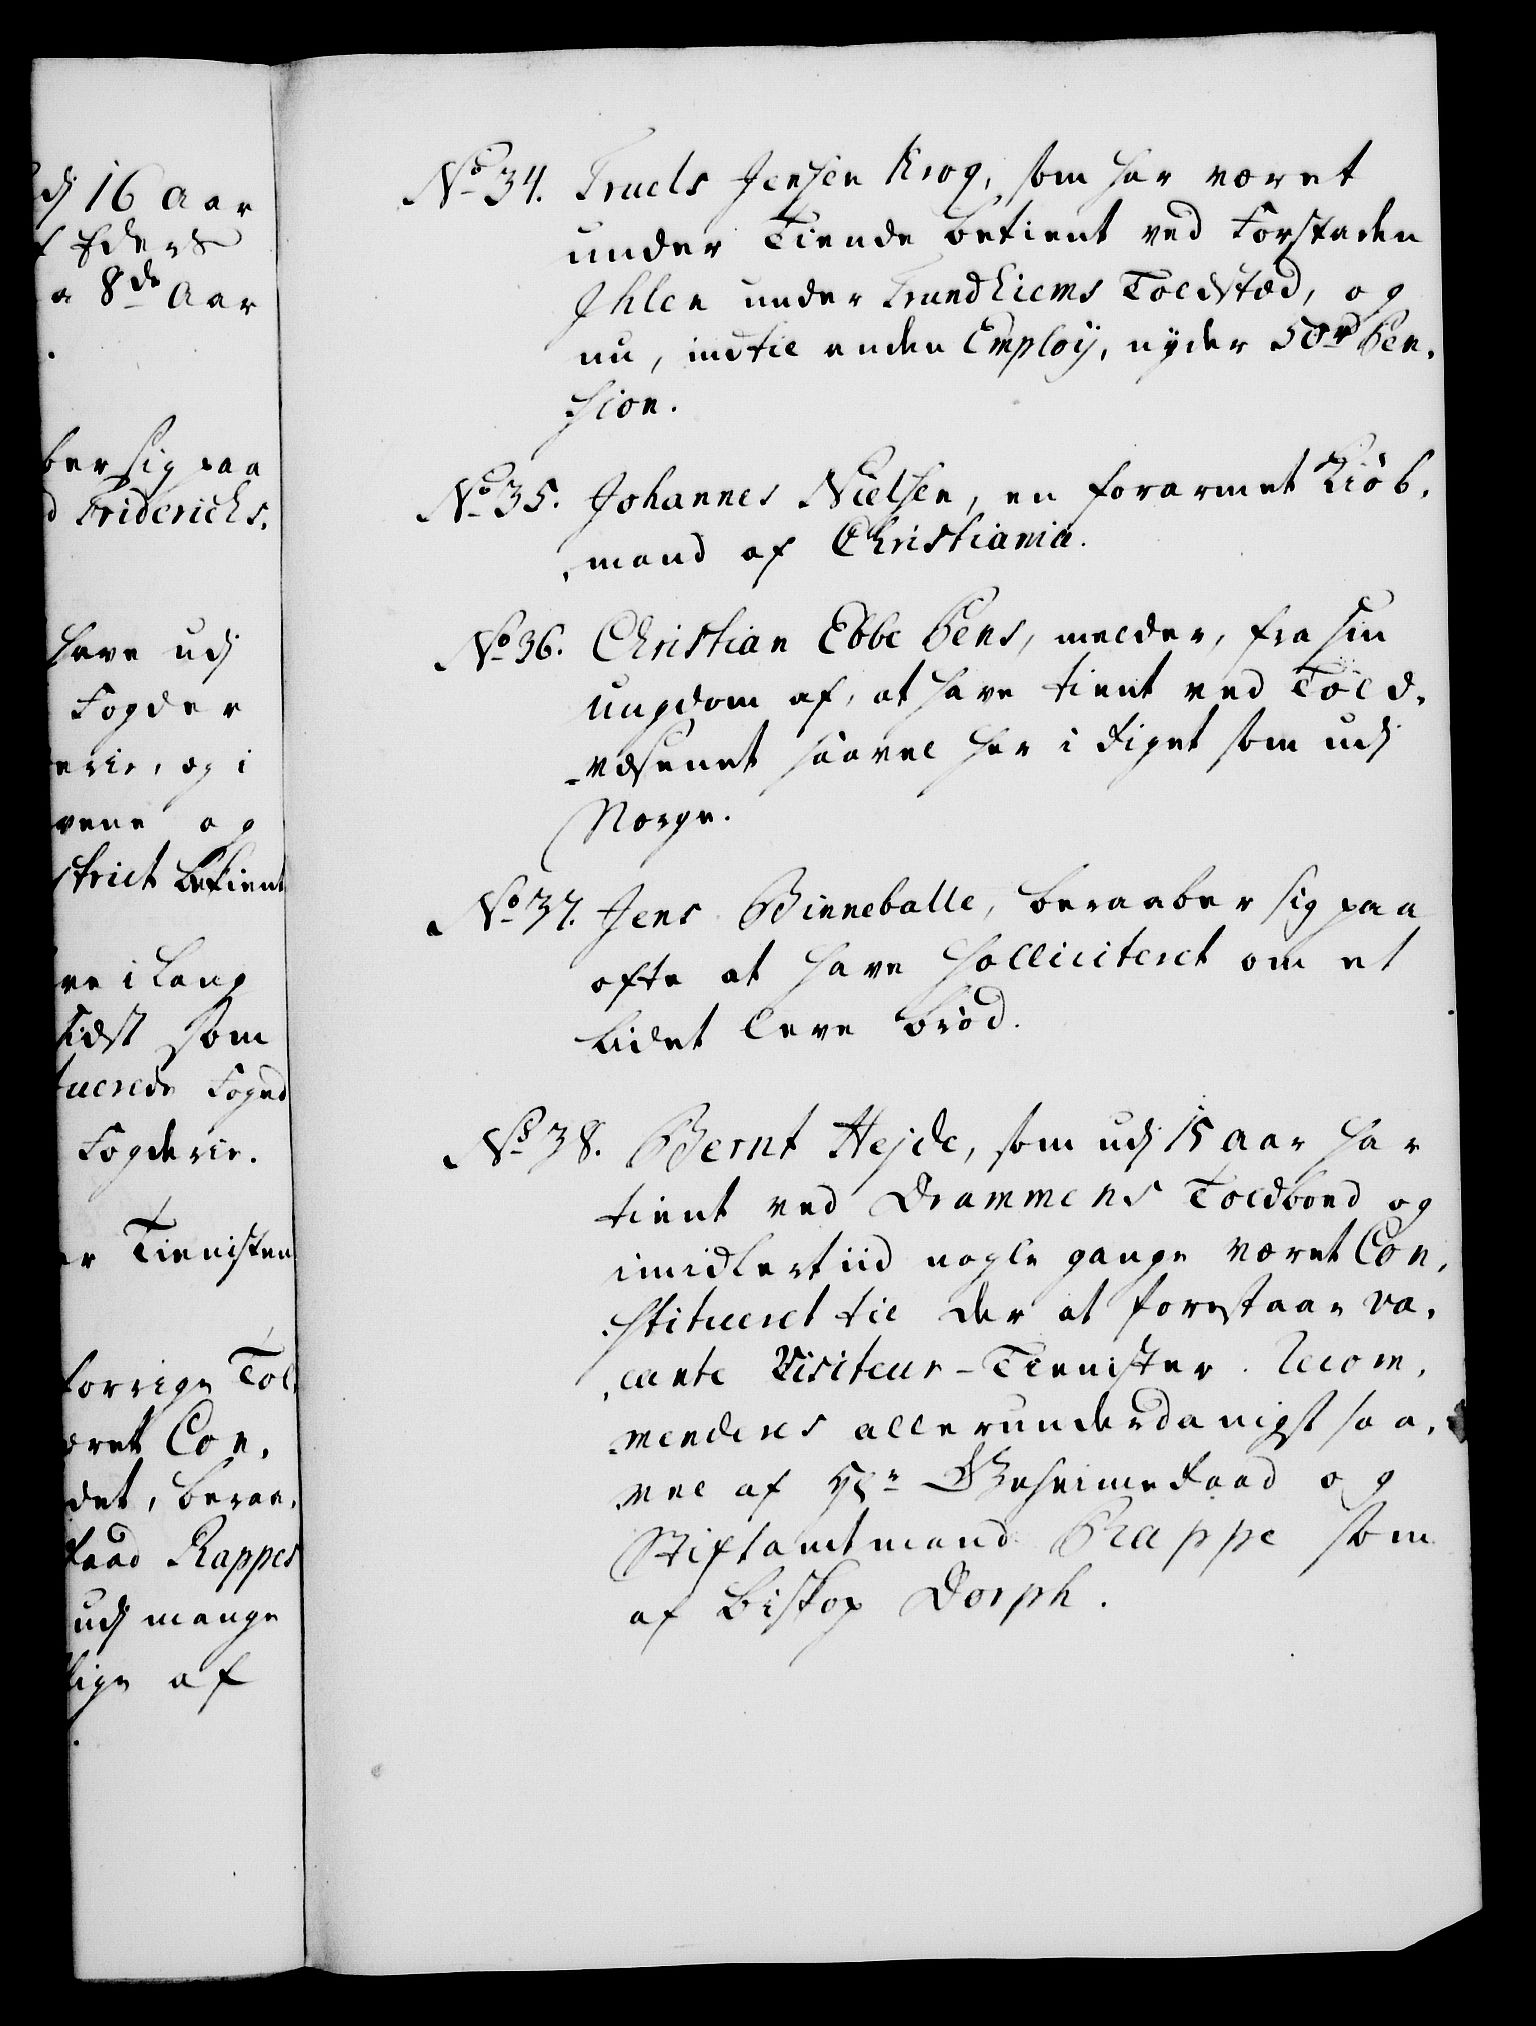 dj 16 Aar
f Eders
a 8de Aar
ber sig paa
d Friderichs.
have udj
Fogder
erie, og i
vene og
strict betient
ve i Lang
sidst som
tuerede Foged
Fogderie.
er Tienisten
forrige Tol,
æret Con,
det, beraa,
Raad Rappes
udj mange
lige af
No 34. Truels Jensen Krog, som har været
under Tiende betient ved Forstaden
Ihlen under Trundhiems Toldsted, og
nu, indtil anden Employ, nyder 50rd Pen,
sion.
No 35. Johannes Nielsen, en forarmet Kiøb,
mand af Christiania.
No 36. Christian Ebbe Bens, melder, fra sin
ungdom af, at have tient ved Told,
væsenet saavel her i Riget som udj
Norge.
No 37. Jens Binneballe, beraaber sig paa
ofte at have Solliciteret om et
lidet leve brød.
No 38. Bernt Hejde, som udj 15 Aar har
tient ved Drammens Toldboed og
imidlertiid nogle gange været Con,
stitueret til der at forestaae va,
cante Visiteur-Tienister. Recom,
menderes allerunderdanigst saa,
vel af Hr Geheimeraad og
Stiftamtmand Rappe som
af Biskop Dorph.